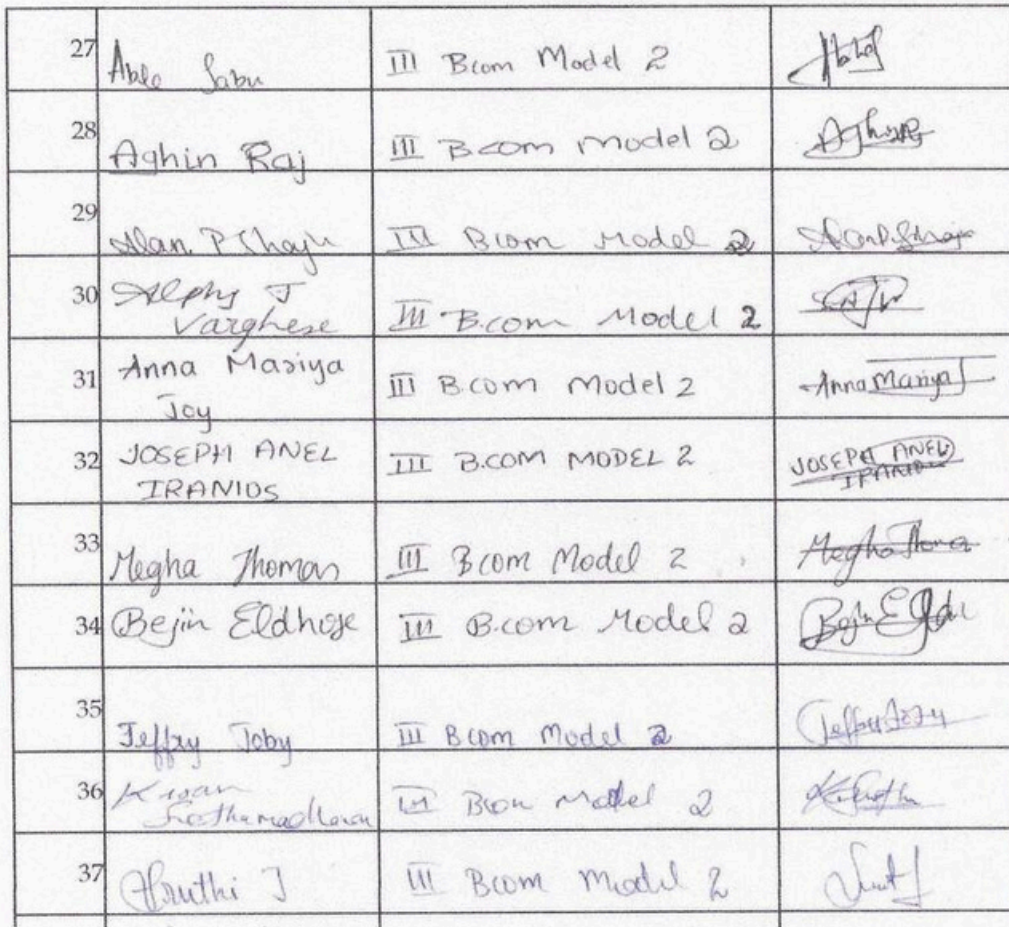 27 Able Sabu III Bcom Model 2
28 Aghin Raj III B.com Model 2 Aghin
29 Alan P Shaju III Bcom Model 2 Alan P Shaju
30 Alphy J
Varghese III B.com Model 2
31 Anna Mariya
Joy III B.com Model 2 Anna Mariya J
32 JOSEPH ANEL
IRANIOS III B.COM MODEL 2 JOSEPH ANEL
IRANIOS
33 Megha Thomas III Bcom Model 2 Megha Thomas
34 Bejin Eldhose III B.com Model 2 Bejin
35 Jeffry Toby III Bcom Model 2 Jeffry
36 Kiran
III Bcom Model 2
37 Sruthi J III Bcom Model 2